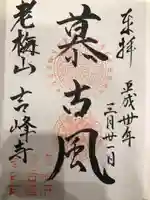 奉拝
平成卅年
三月廿一日
慕古風
老梅山 吉峰寺